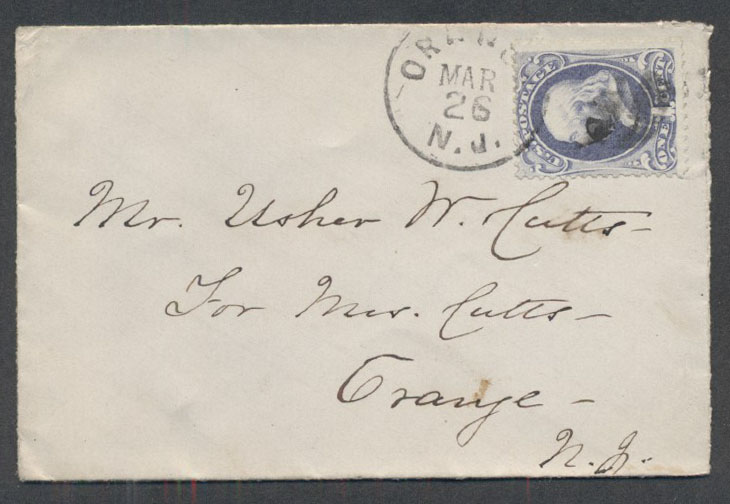 ORANG
MAR
26
N.J.
U.S. POSTAGE
ONE
Mr. Usher W. Cutts-
For Mrs. Cutts-
Orange-
N.J.